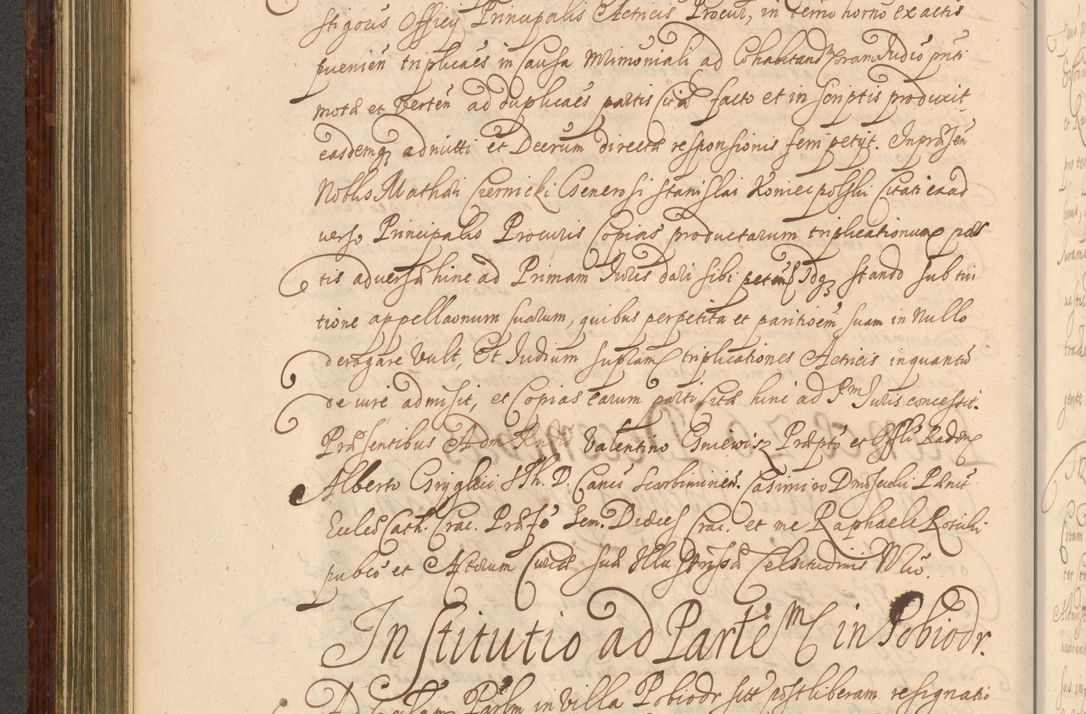 stigoris Officy Principalis Actricis Procur, in termo horno ex actis
puenien triplicaēs in Causa Mrimoniali ad Cohabitand Coram Iudio pnti
motā et verten ad duplicaes partis Citā facto et in scriptis produxit
easdemq admitti et Decrum directā responsionis ferri petyt. In prāsen
Nobilis Mathæi Czernicki Generosi Stanislai Koniecpolski Citati ea ad
verso Principalis Procuris Copias productarum triplicationum par
tis adversā hinc ad Primam Iuris dari sibi petens Idq stando sub tui
tione appellaonum suarum, quibus perpetita et paritioem suam in Nullo
derogare vult, Et Iudium suplam triplicationes Actricis in quantū
de iure admisit, et Copias earum parti Citā hinc ad Pm Iuris concessit.
Præsentibus Adm Rndis Valentino Gniewisz Præpto et Offli Radom
Alberto Gryglicki S.Th.D. Canco Scarbimirien. Casimiro Dmosecki Pænit
Eccles Cath. Crac. Præfo Sem. Diæces Crac. et me Raphaele
pubco et Actorum Curiæ suæ Illustrissæ Celsitudinis Nrio.
Institutio ad Parte in Pobiedr.
Ecclam Parlm in villa Pobiedr sitt post liberam resignatio